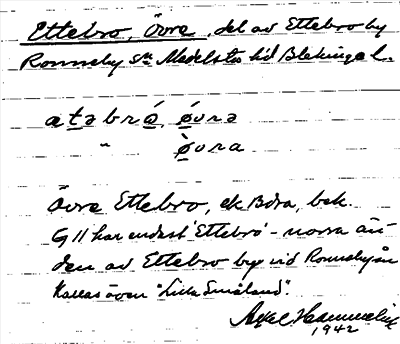 Ettebro, Övre, del av Ettebro by
Ronneby sn Medelsta hd Blekinge l.
atəbrö́, ǿvrə
" ø̀vra
Övre Ettebro, ek Böra, bek.
G II har endast "Ettebro" - norra än-
den av Ettebro by vid Ronnebyån
kallas även "Lilla Småland".
Axel
1942